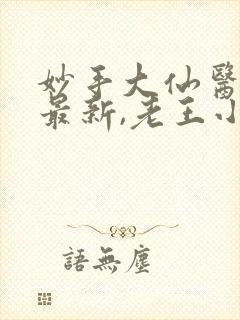 妙手大仙醫
最新,老王小
語無塵